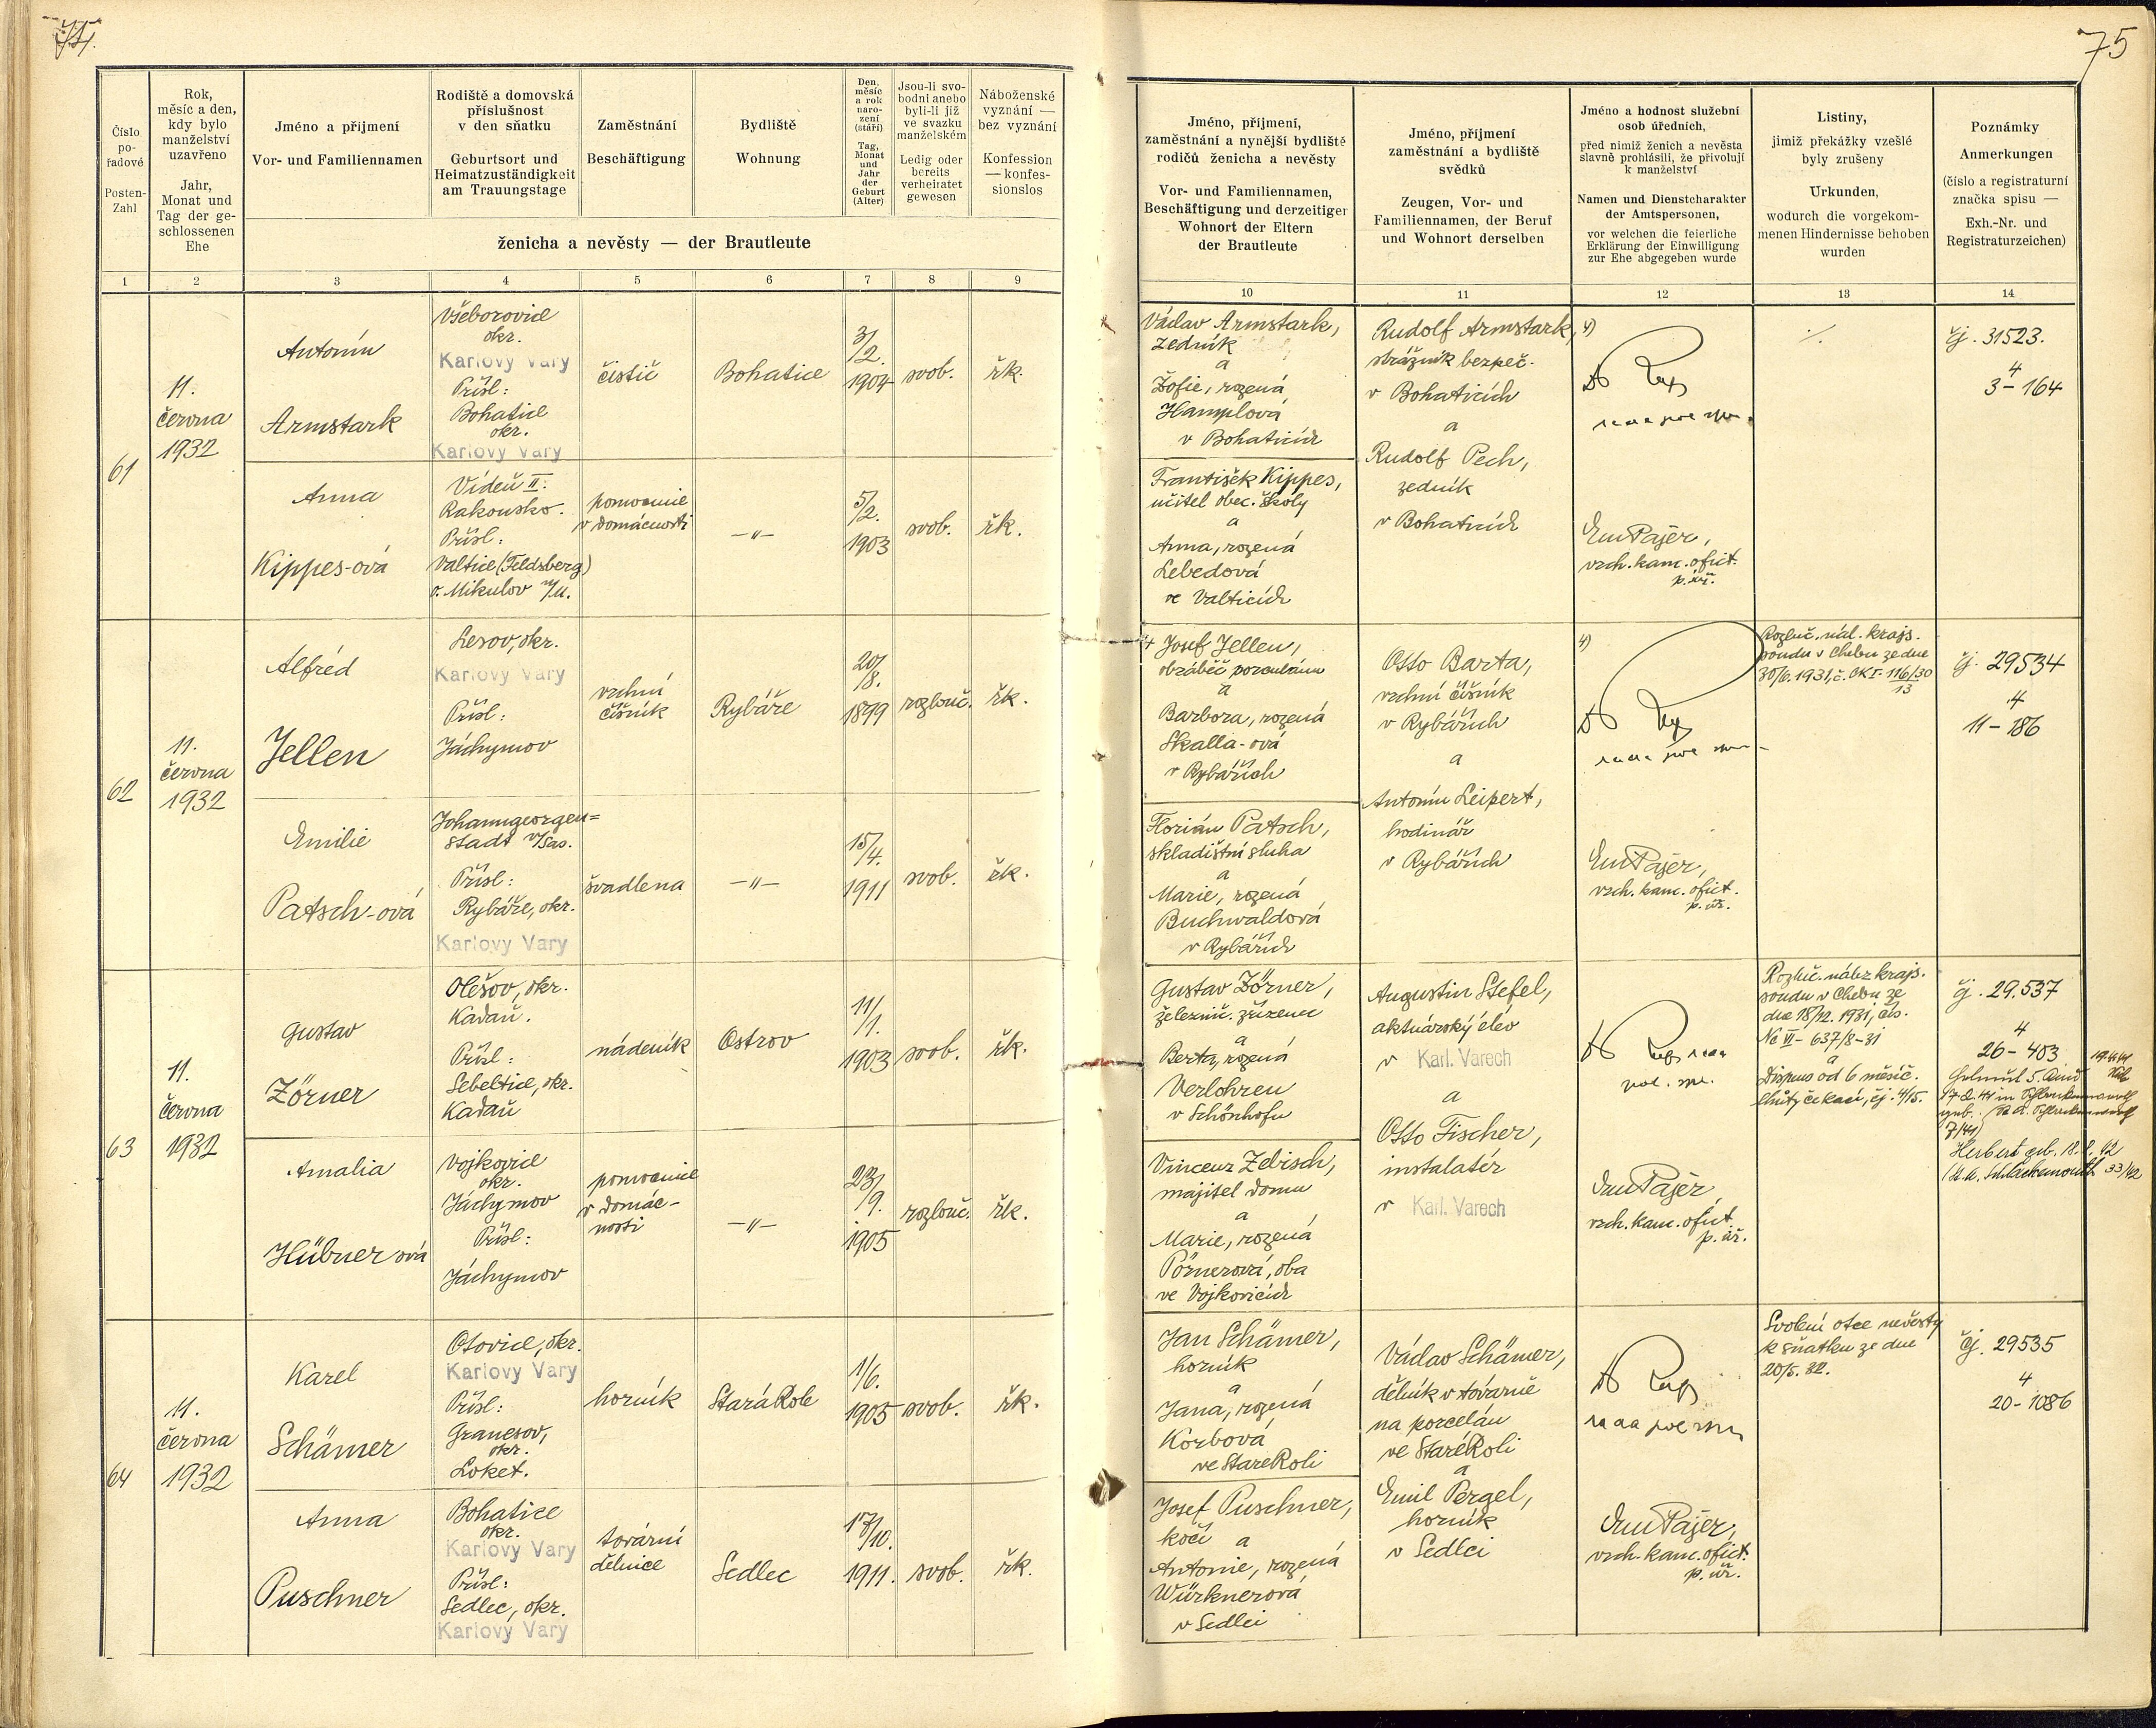 74.
75
Číslo pořadové
Posten-Zahl
Rok, měsíc a den, kdy bylo manželství uzavřeno
Jahr, Monat und Tag der geschlossenen Ehe
Jméno a příjmení
Vor- und Familiennamen
Rodiště a domovská příslušnost v den sňatku
Geburtsort und Heimatzuständigkeit am Trauungstage
Zaměstnání
Beschäftigung
Bydliště
Wohnung
Den, měsíc a rok narození (stáří)
Tag, Monat und Jahr der Geburt (Alter)
Jsou-li svobodni anebo byli-li již ve svazku manželském
Ledig oder bereits verheiratet gewesen
Náboženské vyznání — bez vyznání
Konfession — konfessionslos
ženicha a nevěsty — der Brautleute
1 2 3 4 5 6 7 8 9
Jméno, příjmení, zaměstnání a nynější bydliště rodičů ženicha a nevěsty
Vor- und Familiennamen, Beschäftigung und derzeitiger Wohnort der Eltern der Brautleute
Jméno, příjmení zaměstnání a bydliště svědků
Zeugen, Vor- und Familiennamen, der Beruf und Wohnort derselben
Jméno a hodnost služební osob úředních,
před nimiž ženich a nevěsta slavně prohlásili, že přivolují k manželství
Namen und Dienstcharakter der Amtspersonen,
vor welchen die feierliche Erklärung der Einwilligung zur Ehe abgegeben wurde
Listiny,
jimiž překážky vzešlé byly zrušeny
Urkunden,
wodurch die vorgekommenen Hindernisse behoben wurden
Poznámky
Anmerkungen
(číslo a registraturní značka spisu —
Exh.-Nr. und Registraturzeichen)
10 11 12 13 14
61
11.
června
1932
Antonín
Armstark
Všeborovice
okr.
Karlovy Vary
Přísl:
Bohatice
okr.
Karlovy Vary
čistič
Bohatice
3/2.
1904
svob.
řk.
Václav Armstark,
zedník
a
Žofie, rozená
Hamplová
v Bohaticích
Rudolf Armstark,
strážník bezpeč.
v Bohaticích
a
Rudolf Pech,
zedník
v Bohaticích
4)
Em Pajer,
vrch. kanc. ofict.
p. úř.
./.
čj. 31523.
4
3-164
Anna
Kippes-ová
Vídeň II.
Rakousko.
Přísl:
Valtice (Feldsberg)
o. Mikulov n/M.
pomocnice
v domácnosti
—"—
5/2.
1903
svob.
řk.
František Kippes,
učitel obec. školy
a
Anna, rozená
Lebedová
ve Valticích
62
11.
června
1932
Alfréd
Jellen
Lesov, okr.
Karlovy Vary
Přísl:
Jáchymov
vrchní
číšník
Rybáře
20/8.
1899
rozlouč.
řk.
Josef Jellen,
obráběč porculánu
a
Barbora, rozená
Skalla-ová
v Rybářích
Otto Barta,
vrchní číšník
v Rybářích
a
Antonín Leipert,
hodinář
v Rybářích
4)
Em Pajer,
vrch. kanc. ofict.
p. úř.
Rozluč. nál. krajs.
soudu v Chebu ze dne
30/6. 1931, č. CK I-116/30
13
čj. 29534
4
11-186
Emilie
Patsch-ová
Johanngeorgen=
stadt v/Sas.
Přísl:
Rybáře, okr.
Karlovy Vary
švadlena
—"—
15/4.
1911
svob.
řk.
Florián Patsch,
skladištní sluha
a
Marie, rozená
Buchwaldová
v Rybářích
63
11.
června
1932
Gustav
Zörner
Olešov, okr.
Kadaň.
Přísl:
Sebeltice, okr.
Kadaň
nádeník
Ostrov
11/1.
1903
svob.
řk.
Gustav Zörner,
železnič. zřízenec
a
Berta, rozená
Verlohren
v Schönhofu
Augustin Stefel,
aktuárský élév
v Karl. Varech
a
Otto Fischer,
instalatér
v Karl. Varech
Em Pajer,
vrch. kanc. ofict.
p. úř.
Rozluč. nález krajs.
soudu v Chebu ze
dne 18/12. 1931, čís.
Nc VI-637/8-31
a
Dispens od 6 měsíč.
lhůty čekací, čj. 4/15.
čj. 29.537
4
26-403
Herbert geb. 18.8.42
33/42
Amalia
Hübnerová
Vojkovice
okr.
Jáchymov
Přísl:
Jáchymov
pomocnice
v domác-
nosti
—"—
23/9.
1905
rozlouč.
řk.
Vincenz Zebisch,
majitel domu
a
Marie, rozená
Pörnerová, oba
ve Vojkovicích
64
11.
června
1932
Karel
Schämer
Otovice, okr.
Karlovy Vary
Přísl:
Granesov,
okr.
Loket.
horník
Stará Role
1/6.
1905
svob.
řk.
Jan Schämer,
horník
a
Jana, rozená
Korbová
ve Staré Roli
Václav Schämer,
dělník v továrně
na porcelán
ve Staré Roli
a
Emil Pergel,
horník
v Sedlci
Em Pajer,
vrch. kanc. ofict.
p. úř.
Svolení otce nevěsty
k sňatku ze dne
20/5. 32.
čj. 29535
4
20-1086
Anna
Puschner
Bohatice
okr.
Karlovy Vary
Přísl:
Sedlec, okr.
Karlovy Vary
tovární
dělnice
Sedlec
17/10.
1911.
svob.
řk.
Josef Puschner,
kočí a
Antonie, rozená
Würknerová
v Sedlci